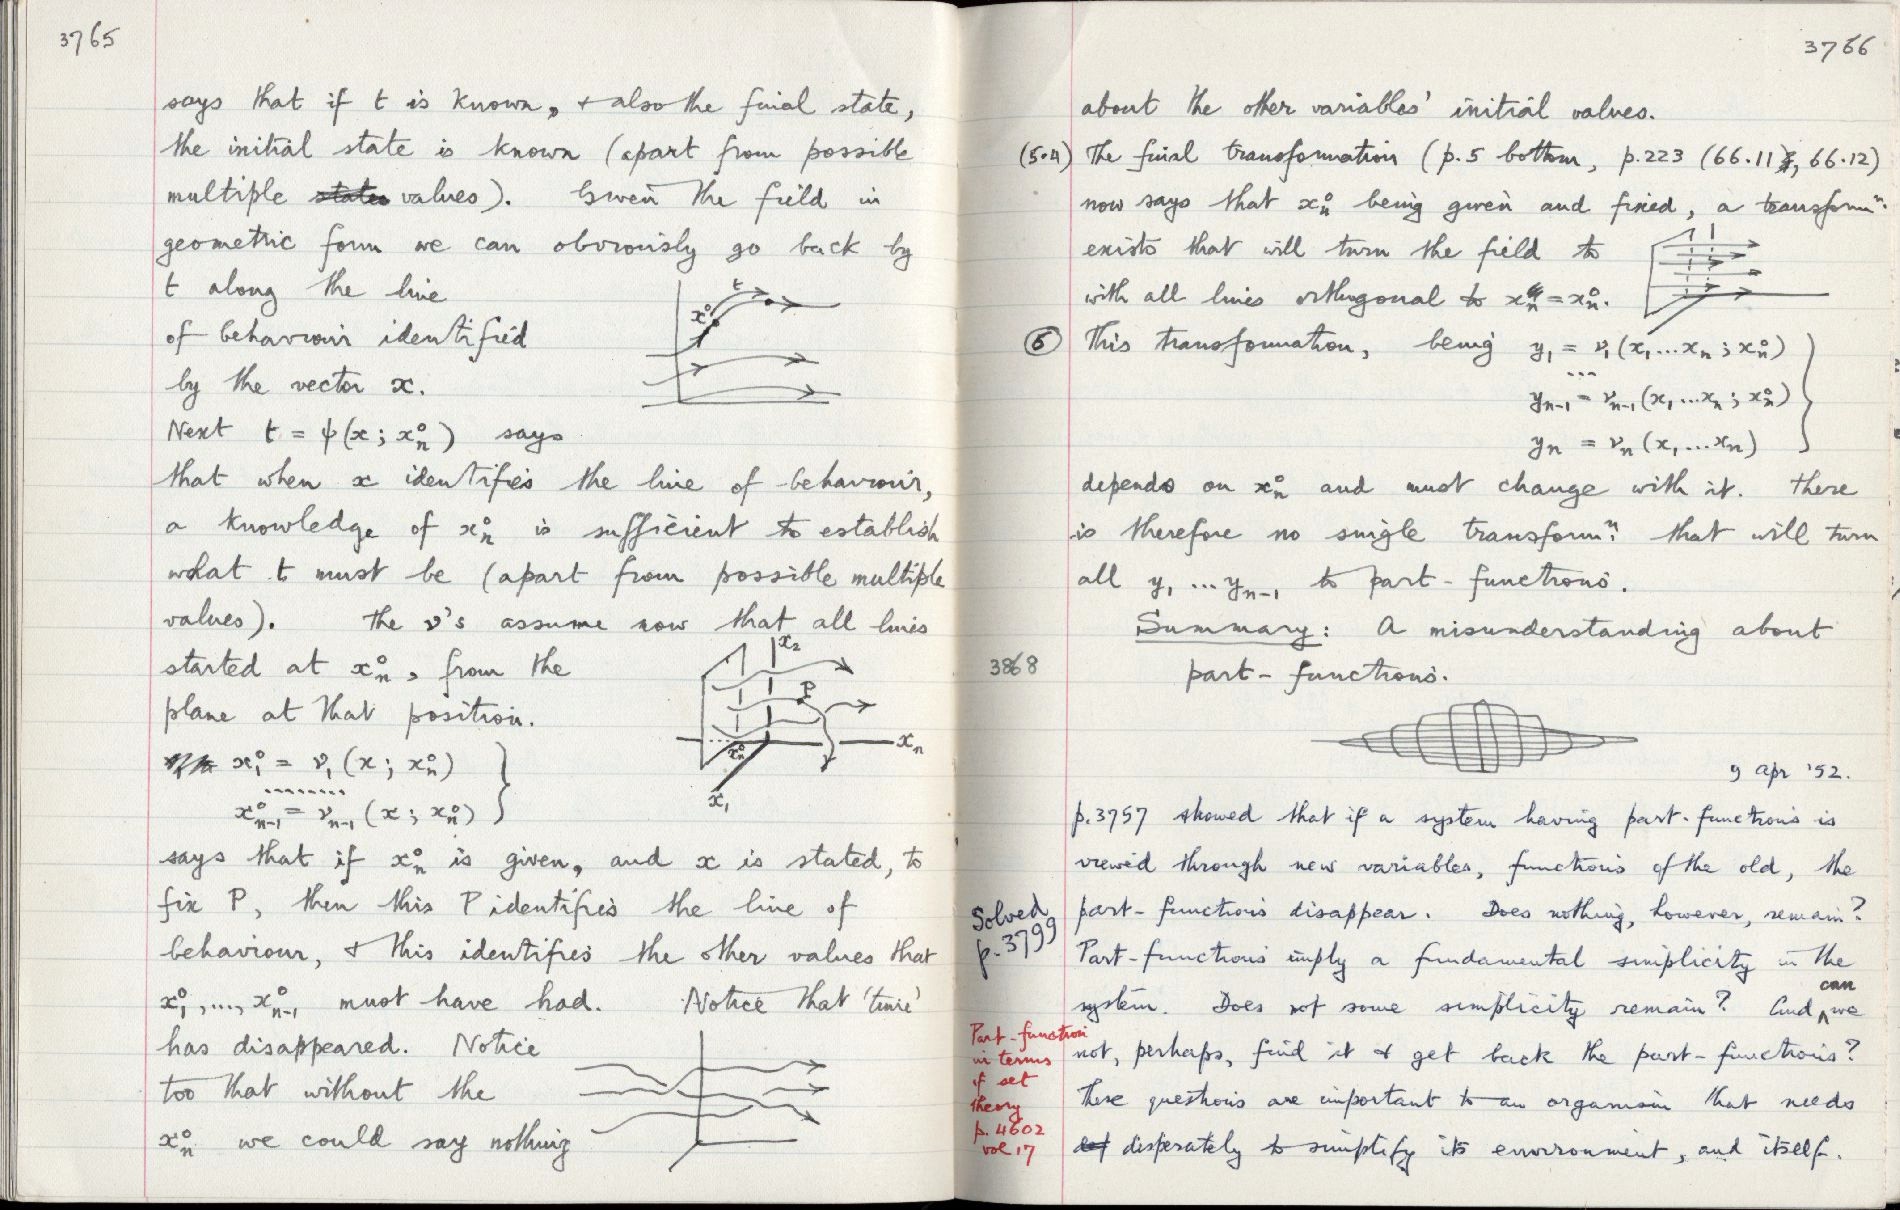 3765
says that if t is known, & also the final state,
the initial state is known (apart from possible
multiple states values). Given the field in
geometric form we can obviously go back by
t along the line
of behaviour identified
by the vector x.
t
x⁰
Next t = ψ(x; xₙ⁰) says
that when x identifies the line of behaviour,
a knowledge of xₙ⁰ is sufficient to establish
what t must be (apart from possible multiple
values). The ν's assume now that all lines
started at xₙ⁰, from the
plane at that position.
x₂
P
xₙ
xₙ⁰
x₁
x₁⁰ = ν₁(x; xₙ⁰)
........
xₙ₋₁⁰ = νₙ₋₁(x; xₙ⁰) }
says that if xₙ⁰ is given, and x is stated, to
fix P, then this P identifies the line of
behaviour, & this identifies the other values that
x₁⁰, ..., xₙ₋₁⁰ must have had. Notice that 'time'
has disappeared. Notice
too that without the
xₙ⁰ we could say nothing
3766
about the other variables' initial values.
(5.4) The final transformation (p.5 bottom, p.223 (66.11), 66.12)
now says that xₙ⁰ being given and fixed, a transformⁿ.
exists that will turn the field to
with all lines orthogonal to xₙ = xₙ⁰.
⑥ This transformation, being y₁ = ν₁(x₁...xₙ; xₙ⁰)
...
yₙ₋₁ = νₙ₋₁(x₁...xₙ; xₙ⁰)
yₙ = νₙ(x₁...xₙ) }
depends on xₙ⁰ and must change with it. There
is therefore no single transformⁿ. that will turn
all y₁ ... yₙ₋₁ to part-functions.
Summary: A misunderstanding about
3868 part-functions.
9 Apr '52.
p.3757 showed that if a system having part-functions is
viewed through new variables, functions of the old, the
part-functions disappear. Does nothing, however, remain?
Solved
p.3799
Part-functions imply a fundamental simplicity in the
system. Does not some simplicity remain? And can we
not, perhaps, find it & get back the part-functions?
These questions are important to an organism that needs
desperately to simplify its environment, and itself.
Part-function
in terms
of set
theory
p. 4602
vol 17